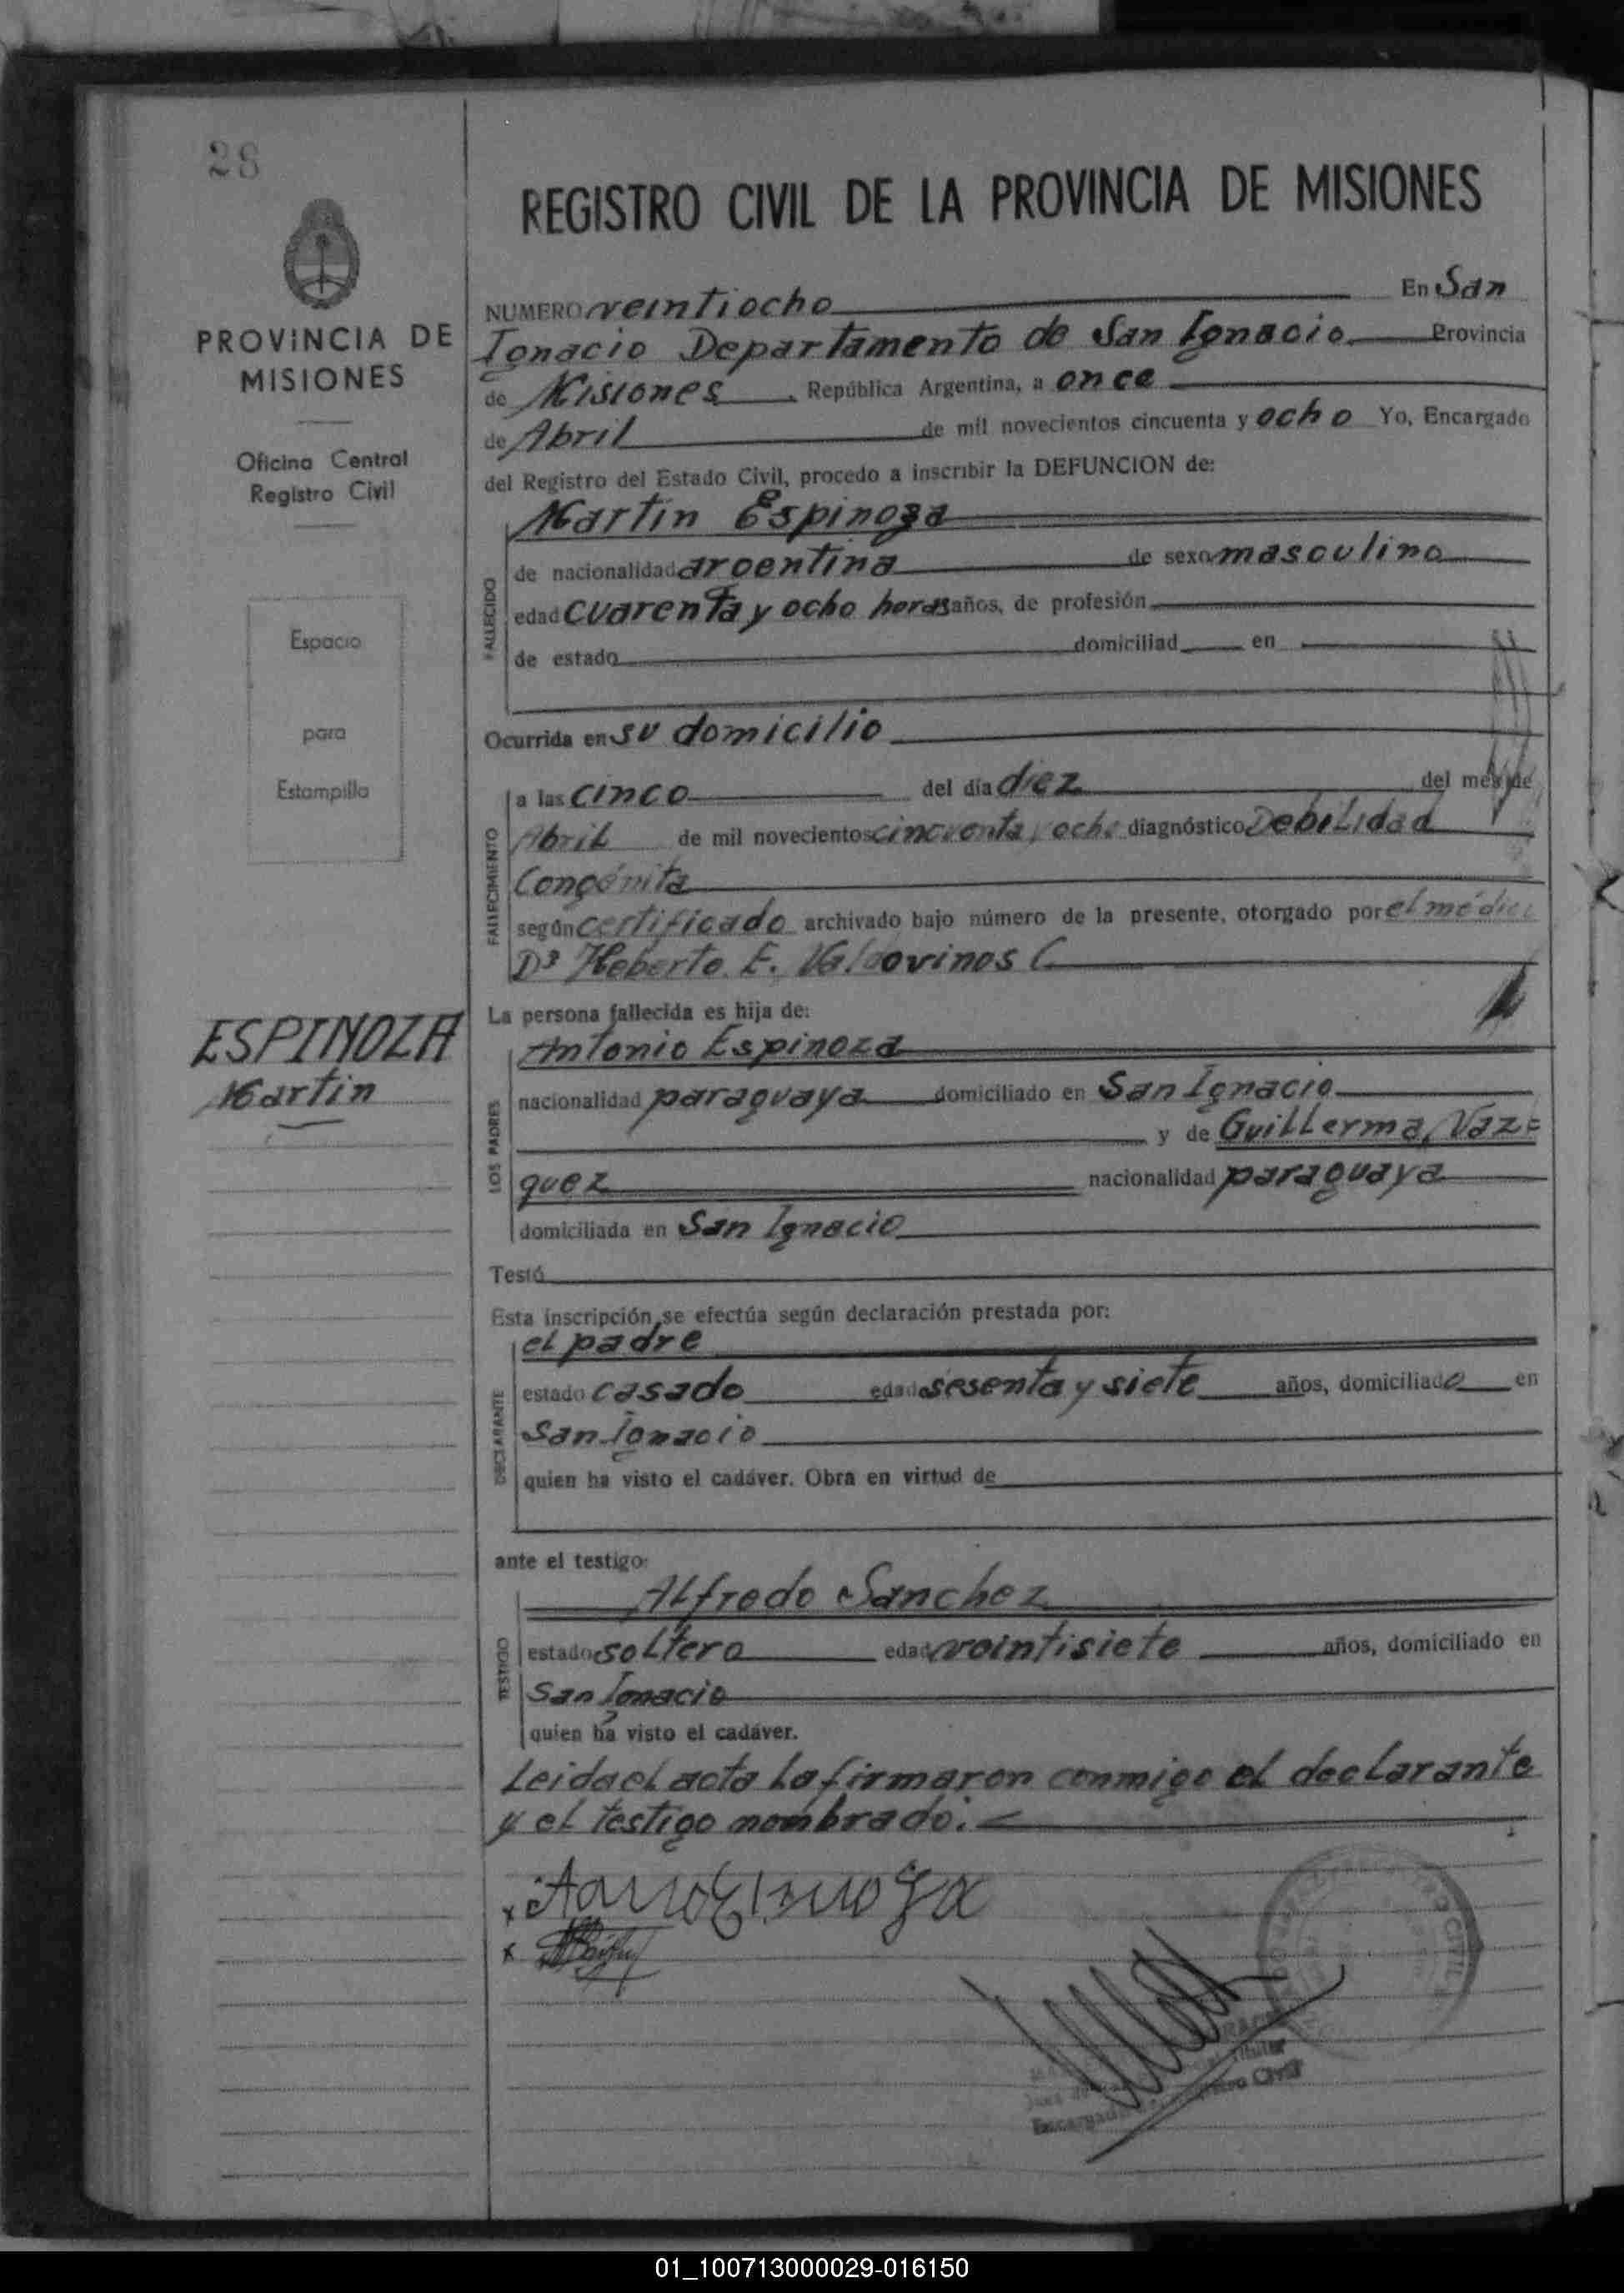 28
PROVINCIA DE
MISIONES
Oficina Central
Registro Civil
Espacio
para
Estampilla
ESPINOZA
Martin
REGISTRO CIVIL DE LA PROVINCIA DE MISIONES
NUMERO veintiocho En San
Ignacio Departamento de San Ignacio Provincia
de Misiones, República Argentina, a once
de Abril de mil novecientos cincuenta y ocho Yo, Encargado
del Registro del Estado Civil, procedo a inscribir la DEFUNCION de:
Martin Espinoza
de nacionalidad argentina de sexo masculino
FALLECIDO
edad cuarenta y ocho horas años, de profesión
de estado domiciliad en
Ocurrida en su domicilio
a las cinco del día diez del mes de
Abril de mil novecientos cincuenta y ocho diagnóstico Debilidad
FALLECIMIENTO
Congénita
según certificado archivado bajo número de la presente, otorgado por el médico
Dr Heberto E. Valdovinos C.
La persona fallecida es hija de:
Antonio Espinoza
nacionalidad paraguaya domiciliado en San Ignacio
LOS PADRES
y de Guillerma Vaz=
quez nacionalidad paraguaya
domiciliada en San Ignacio
Testó
Esta inscripción se efectúa según declaración prestada por:
el padre
estado casado edad sesenta y siete años, domiciliado en
DECLARANTE
San Ignacio
quien ha visto el cadáver. Obra en virtud de
ante el testigo:
Alfredo Sanchez
estado soltero edad veintisiete años, domiciliado en
TESTIGO
San Ignacio
quien ha visto el cadáver.
Leida el acta la firmaron conmigo el declarante
y el testigo nombrado.
Encargado Registro Civil
01_100713000029-016150